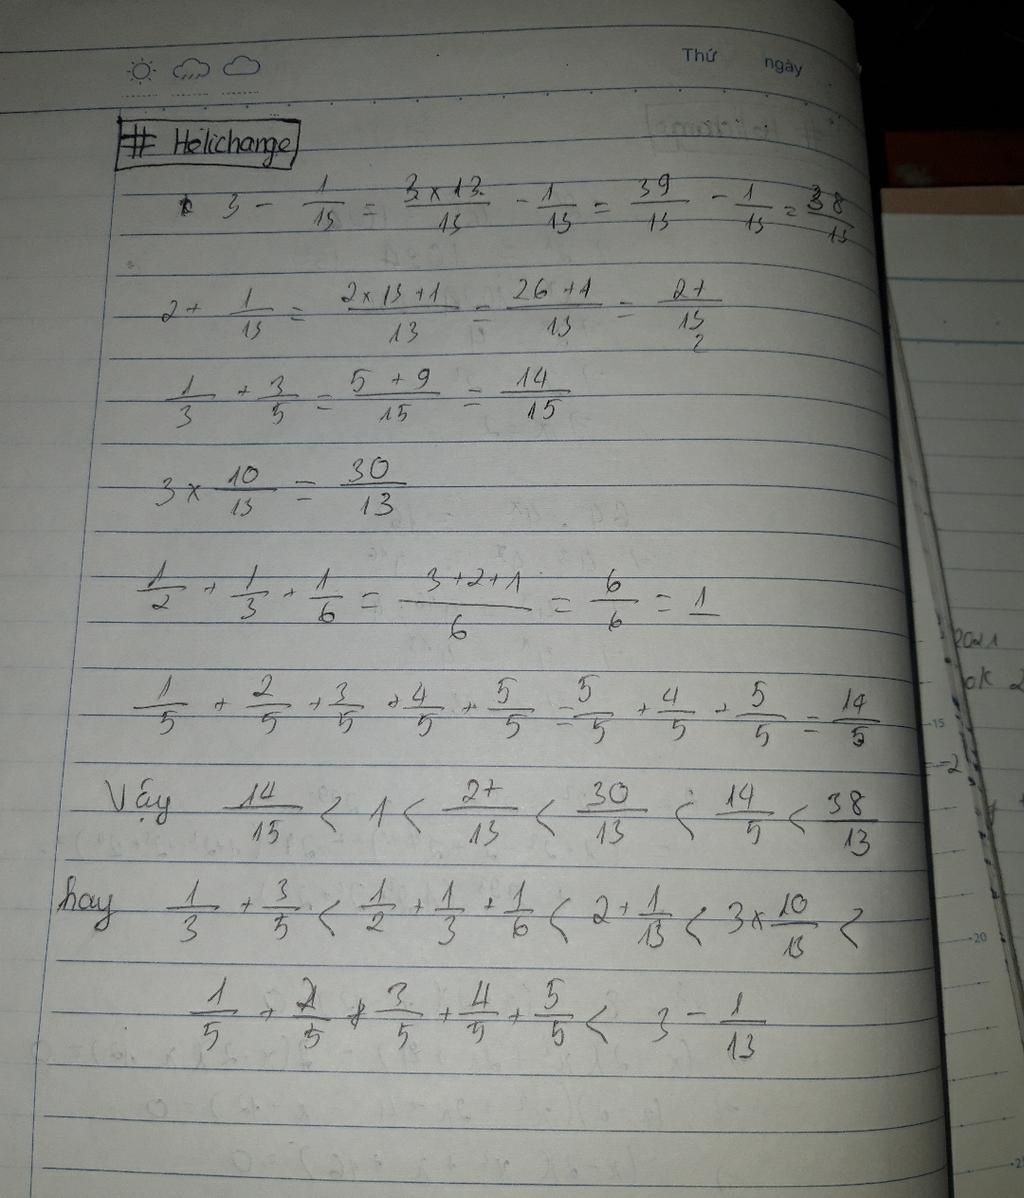 Thứ ngày
# Helichange
3 - 1/13 = 3×13/13 - 1/13 = 39/13 - 1/13 = 38/13
2 + 1/13 = 2×13+1/13 = 26+1/13 = 27/13
1/3 + 3/5 = 5+9/15 = 14/15
3 × 10/13 = 30/13
1/2 + 1/3 + 1/6 = 3+2+1/6 = 6/6 = 1
1/5 + 2/5 + 3/5 + 4/5 + 5/5 = 5/5 + 4/5 + 5/5 = 14/5
Vậy 14/15 < 1 < 27/13 < 30/13 < 14/5 < 38/13
hay 1/3 + 3/5 < 1/2 + 1/3 + 1/6 < 2 + 1/13 < 3 × 10/13 <
1/5 + 2/5 + 3/5 + 4/5 + 5/5 < 3 - 1/13
2021
ok 2
15
= -2
20